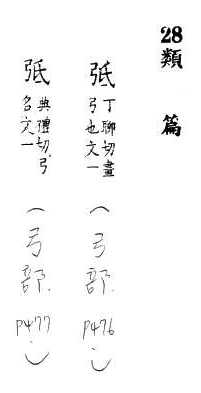 28類篇
弤丁聊切畫弓也文一(弓部.p476.)
弤典禮切.弓名文一(弓部.p477.)